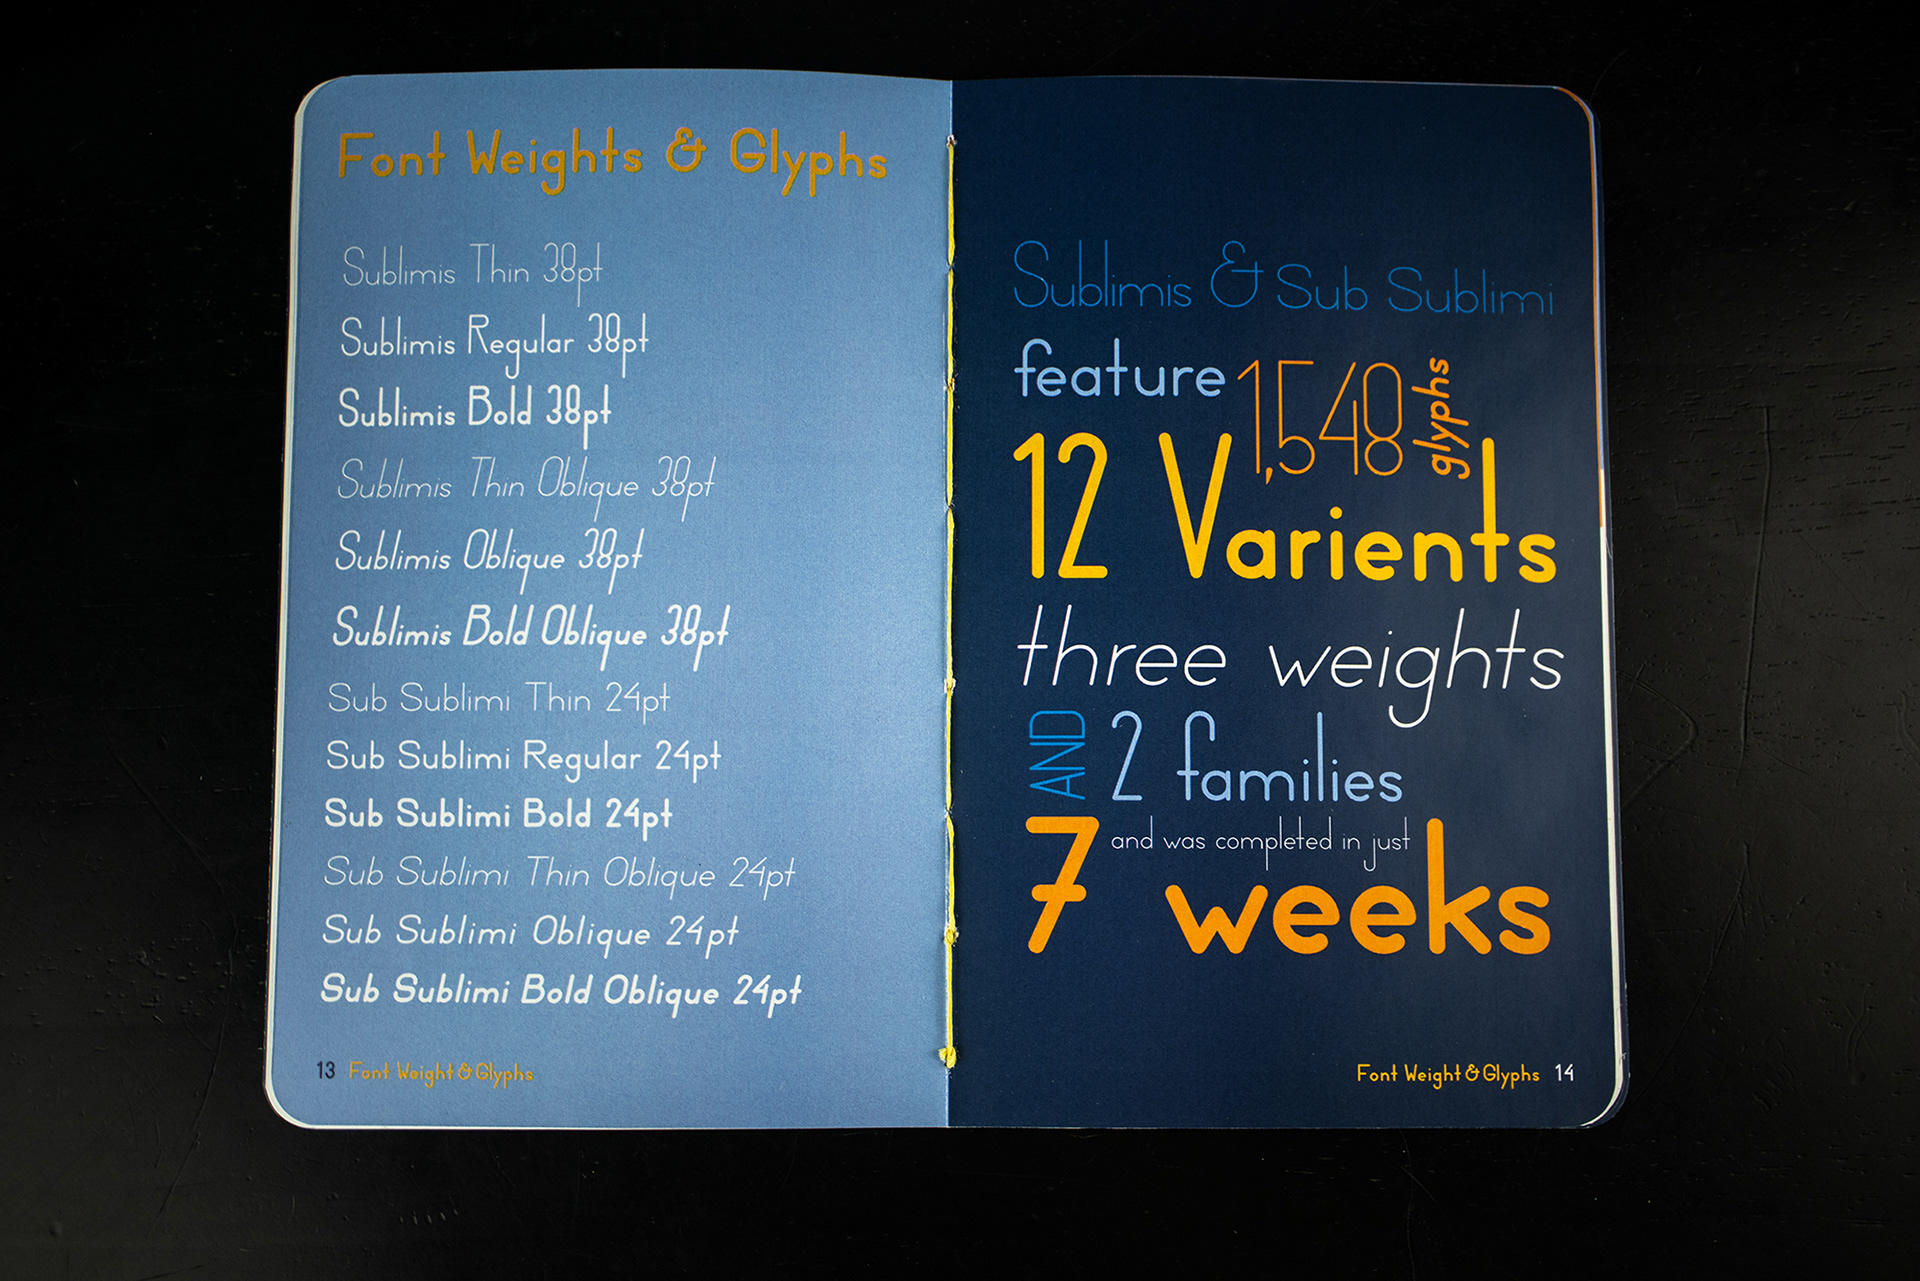 Font Weights & Glyphs
Sublimis Thin 38pt
Sublimis Regular 38pt
Sublimis Bold 38pt
Sublimis Thin Oblique 38pt
Sublimis Oblique 38pt
Sublimis Bold Oblique 38pt
Sub Sublimi Thin 24pt
Sub Sublimi Regular 24pt
Sub Sublimi Bold 24pt
Sub Sublimi Thin Oblique 24pt
Sub Sublimi Oblique 24pt
Sub Sublimi Bold Oblique 24pt
13 Font Weight & Glyphs
Sublimis & Sub Sublimi
feature 1,548 glyphs
12 Varients
three weights
AND 2 families
and was completed in just
7 weeks
Font Weight & Glyphs 14